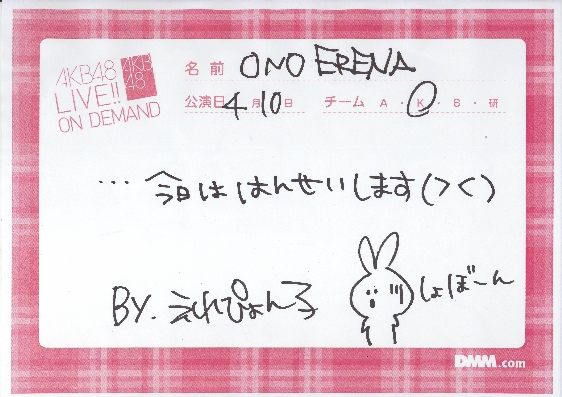 AKB48
LIVE!!
ON DEMAND
AKB
48
名前 ONO ERENA
公演日 4月10日 チーム A・K・B・研
… 今日は はんせいします(> <)
BY. えれぴょん子
しょぼーん
DMM.com